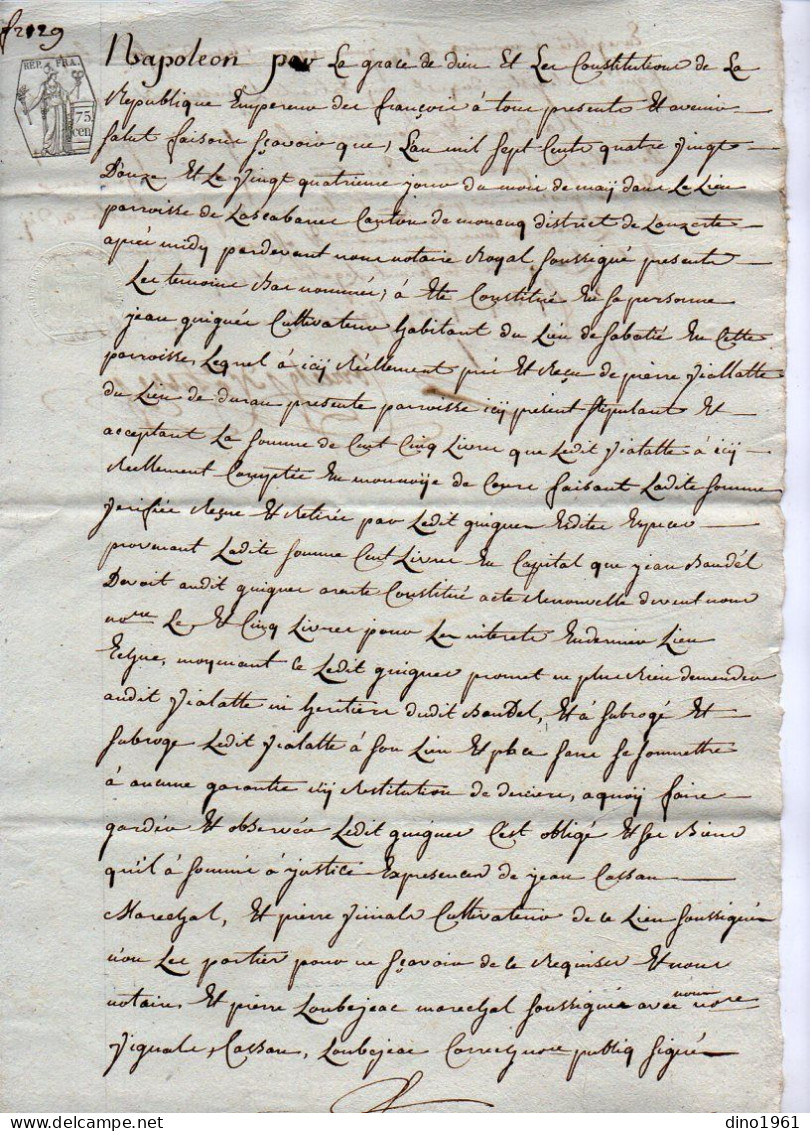 fr 29
REP. FRA.
75
cen
Napoleon par La grace de dieu Et Les Constitutions de La
Republique Empereur des françois à tous presents Et avenir
salut faisons sçavoir que, L'an mil sept Cents quatre vingt
Douze Et Le vingt quatrieme jour du mois de maÿ dans Le Lieu
parroisse de Lascabanes Canton de moncuq district de Lauzerte
après midy pardevant nous notaire Royal soussigné presents
Les temoins Bas nommés, à Eté Constitué En sa personne
jean guigues Cultivateur habitant du Lieu de sabatié En Cette
parroisse, Lequel à içÿ Réellement pris Et Reçu de pierre viallatte
du Lieu de duran presente parroisse içÿ present stipulant Et
acceptant La somme de Cent Cinq Livres que Ledit vialatte à içÿ
Réellement Comptée En monnoÿe de Cours faisant Ladite somme
verifiée Reçue Et Retirée par Ledit guigues Esdites Especes
provenant Ladite somme Cent Livres En Capital que jean Baudel
Devoit audit guigues a rente Constitué acte Renouvelle devant nous
no.re Le Et Cinq Livres pour Les interets En dernier Lieu
Echus, moyenant ce Ledit guigues promet ne plus Rien demender
audit vialatte ni heritiers dudit Baudel, Et à subrogé Et
subroge Ledit vialatte à son Lieu Et place sans se soumettre
à aucune garantie içÿ Restitution de deniers, a quoÿ faire
garder Et observer Ledit guigues C'est obligé Et ses Biens
qu'il à soumis à justice En presences de jean Cassan
Marechal, Et pierre vinials Cultivateur de ce Lieu soussignés
non Les parties pour ne sçavoir de ce Requises Et nous
notaire, Et pierre Loubejeac marechal soussignés avec nous no.re
Vignals, Cassan, Loubejeac Correch no.re publiq signés
dino1961